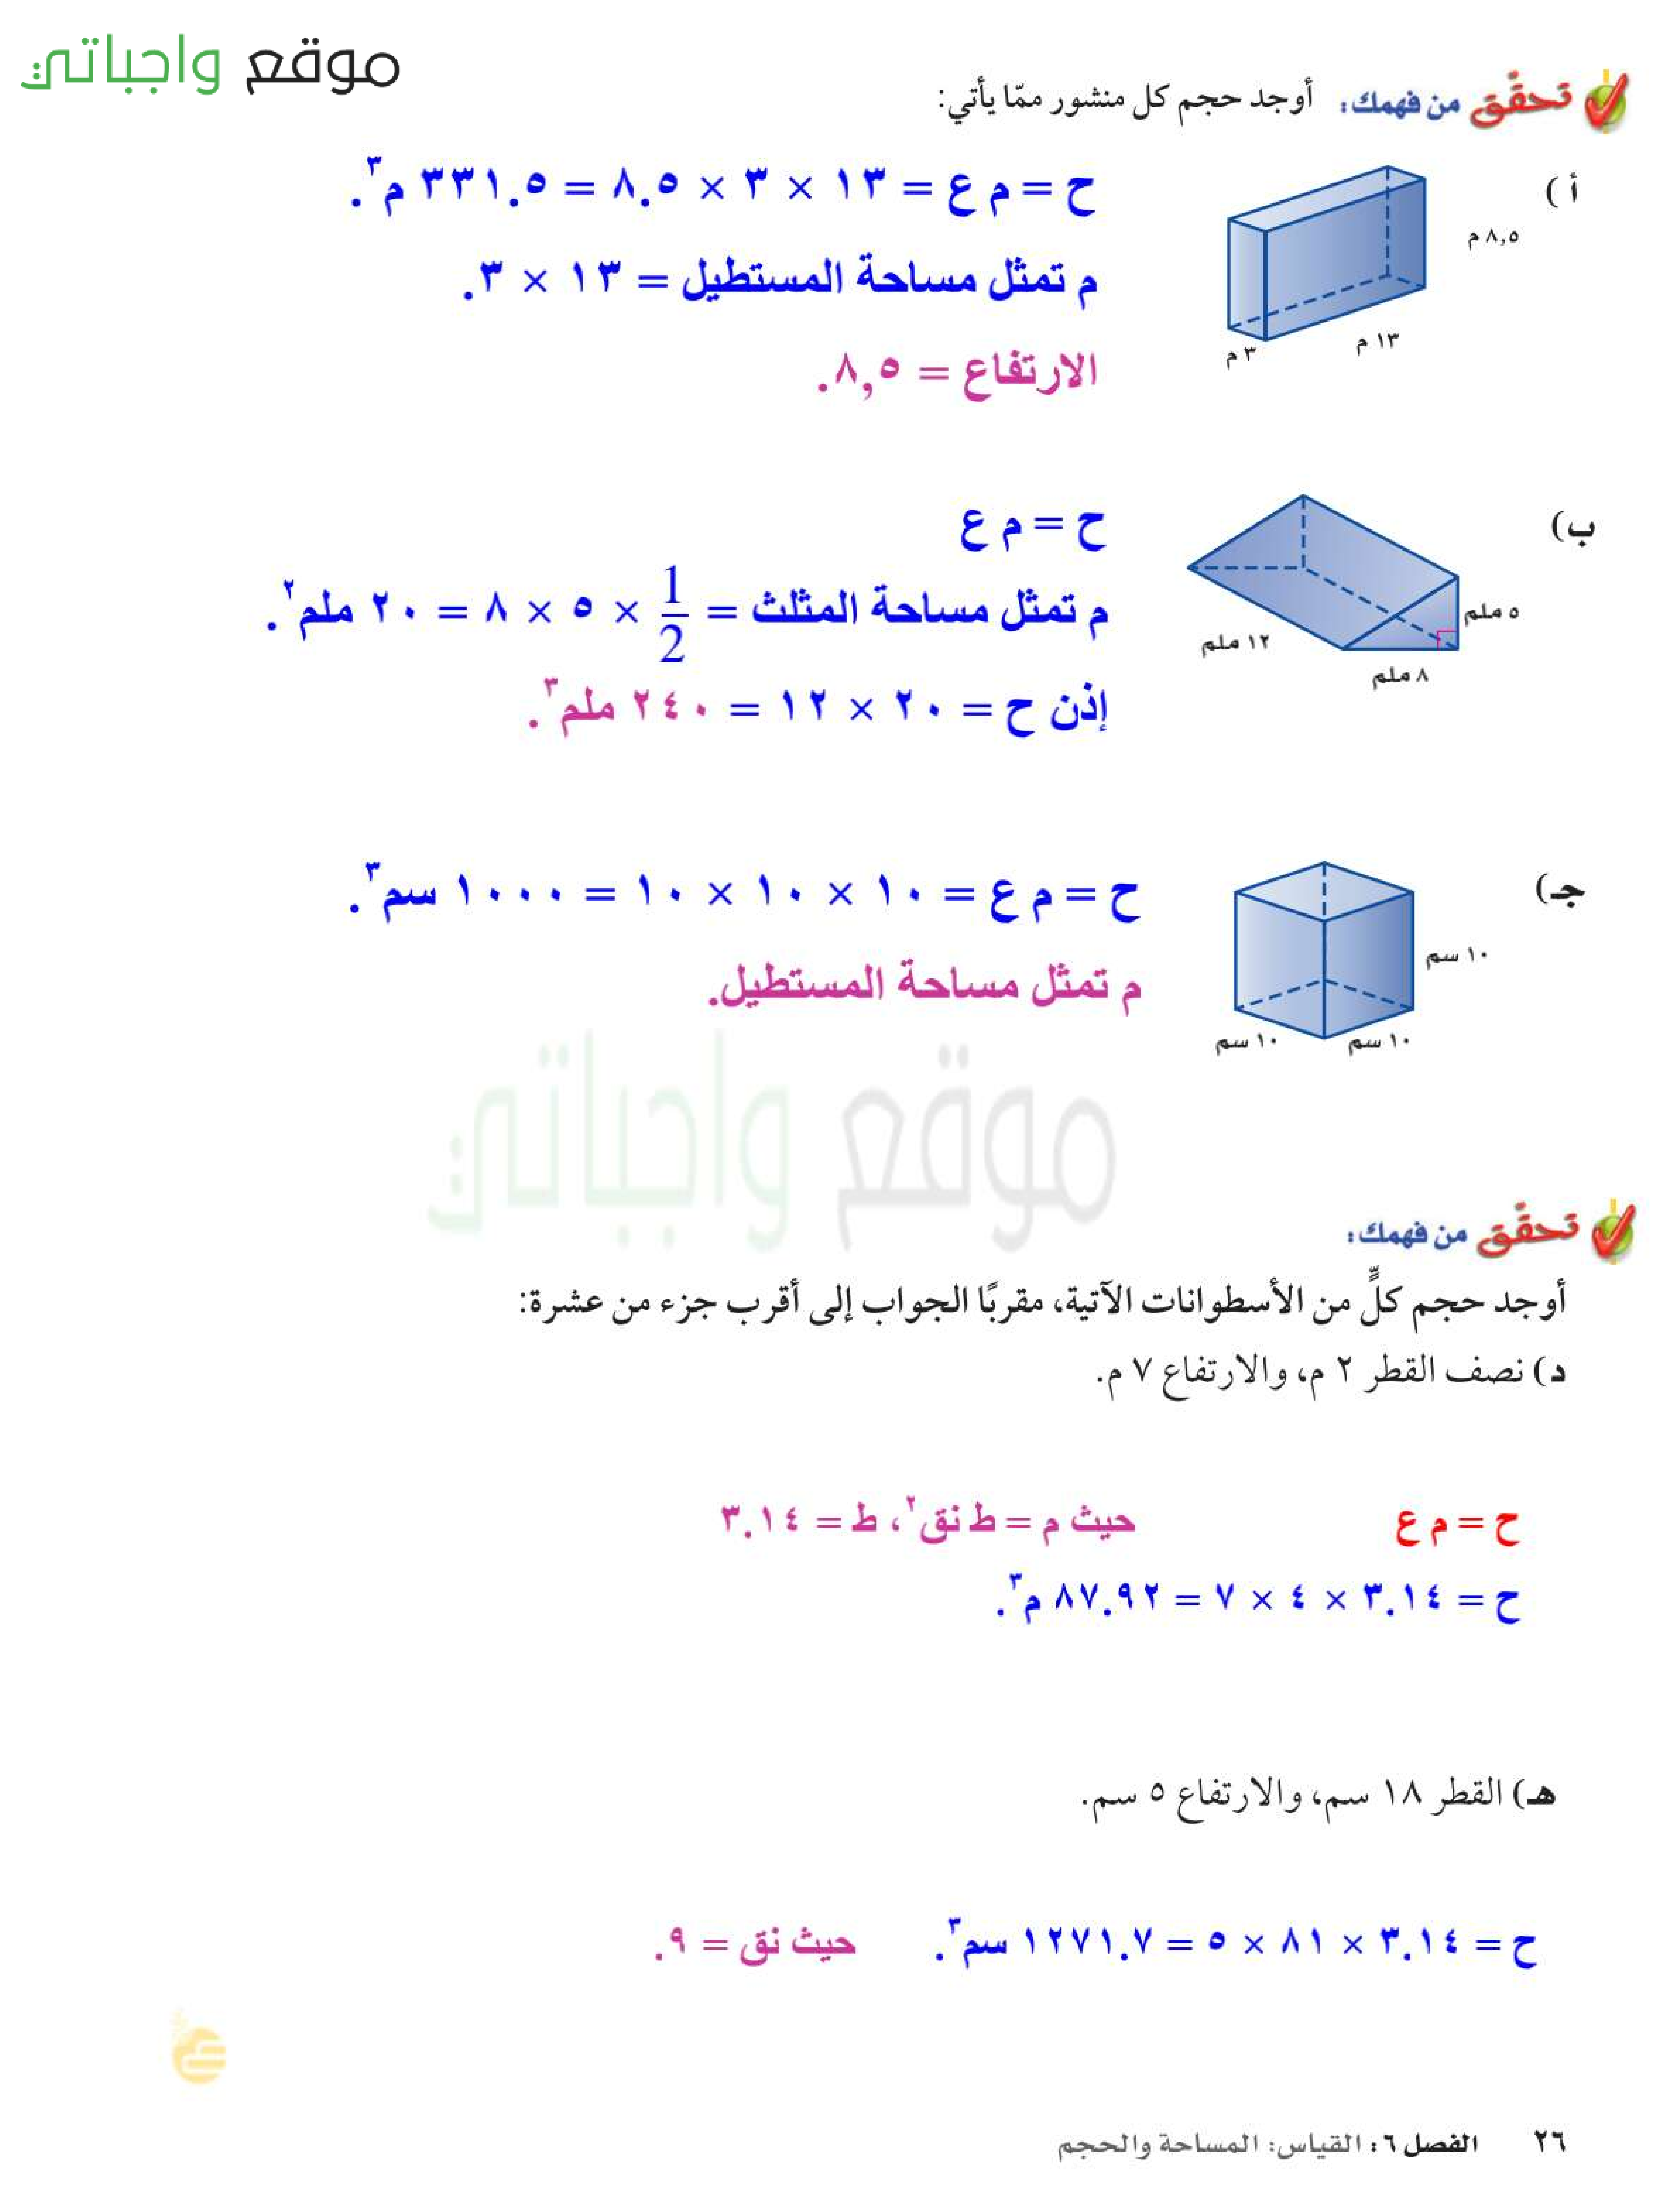 موقع واجباتي
تحقق من فهمك: أوجد حجم كل منشور ممّا يأتي:
أ ) ح = م ع = ١٣ × ٣ × ٨.٥ = ٣٣١.٥ م٣.
٨,٥ م
م تمثل مساحة المستطيل = ١٣ × ٣.
١٣ م
٣ م
الارتفاع = ٨,٥.
ب) ح = م ع
م تمثل مساحة المثلث = 1/2 × ٥ × ٨ = ٢٠ ملم٢.
٥ ملم
١٢ ملم
٨ ملم
إذن ح = ٢٠ × ١٢ = ٢٤٠ ملم٣.
جـ) ح = م ع = ١٠ × ١٠ × ١٠ = ١٠٠٠ سم٣.
١٠ سم
م تمثل مساحة المستطيل.
١٠ سم
١٠ سم
موقع واجباتي
تحقق من فهمك:
أوجد حجم كلٍّ من الأسطوانات الآتية، مقربًا الجواب إلى أقرب جزء من عشرة:
د) نصف القطر ٢ م، والارتفاع ٧ م.
ح = م ع حيث م = ط نق٢، ط = ٣.١٤
ح = ٣.١٤ × ٤ × ٧ = ٨٧.٩٢ م٣.
هـ) القطر ١٨ سم، والارتفاع ٥ سم.
ح = ٣.١٤ × ٨١ × ٥ = ١٢٧١.٧ سم٣. حيث نق = ٩.
٢٦ الفصل ٦: القياس: المساحة والحجم